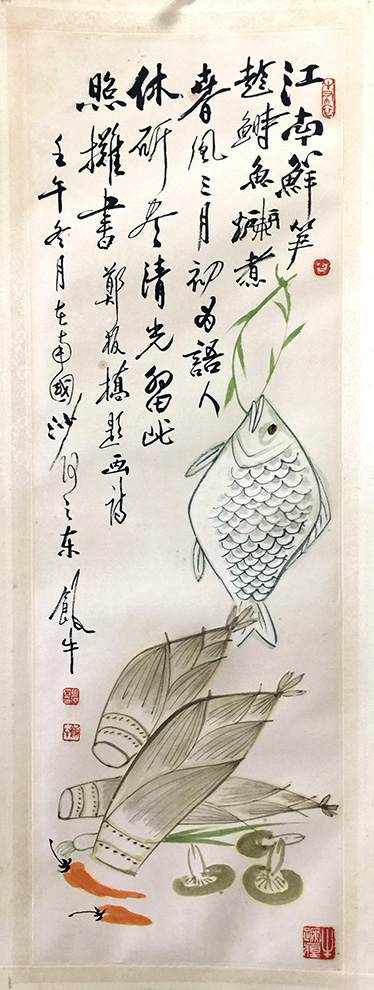 江南鮮笋
趁鰣魚爛煮
春風三月初為語人
休斫尽清光留此
照攤書 鄭板橋題画詩
壬午冬月在南國沙河之东 飯牛